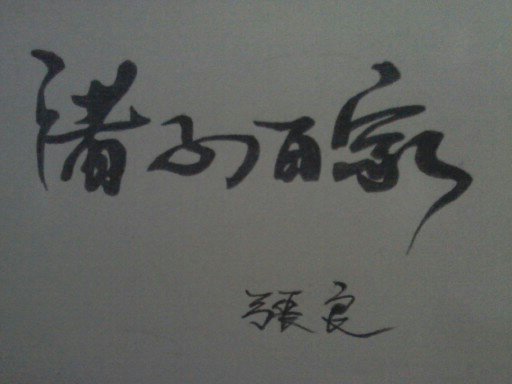 诸子百家
張良